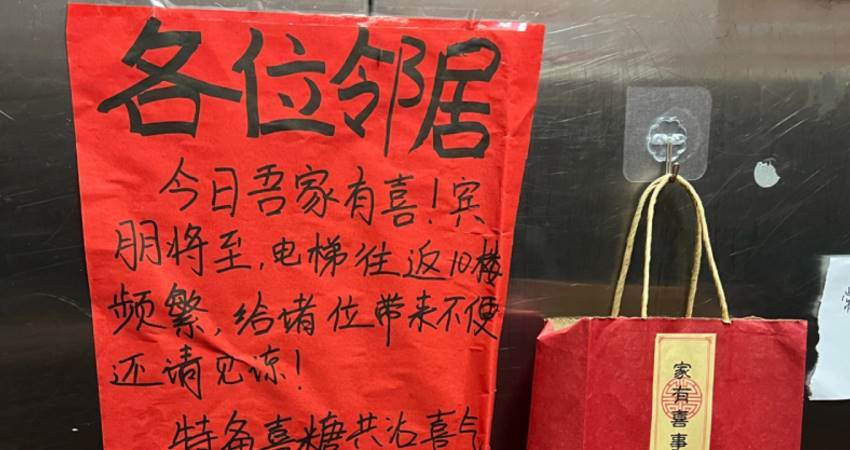 各位邻居
今日吾家有喜！宾
朋将至，电梯往返10楼
频繁，给堵位带来不便
还请见谅！
特备喜糖共沾喜气
家有喜事